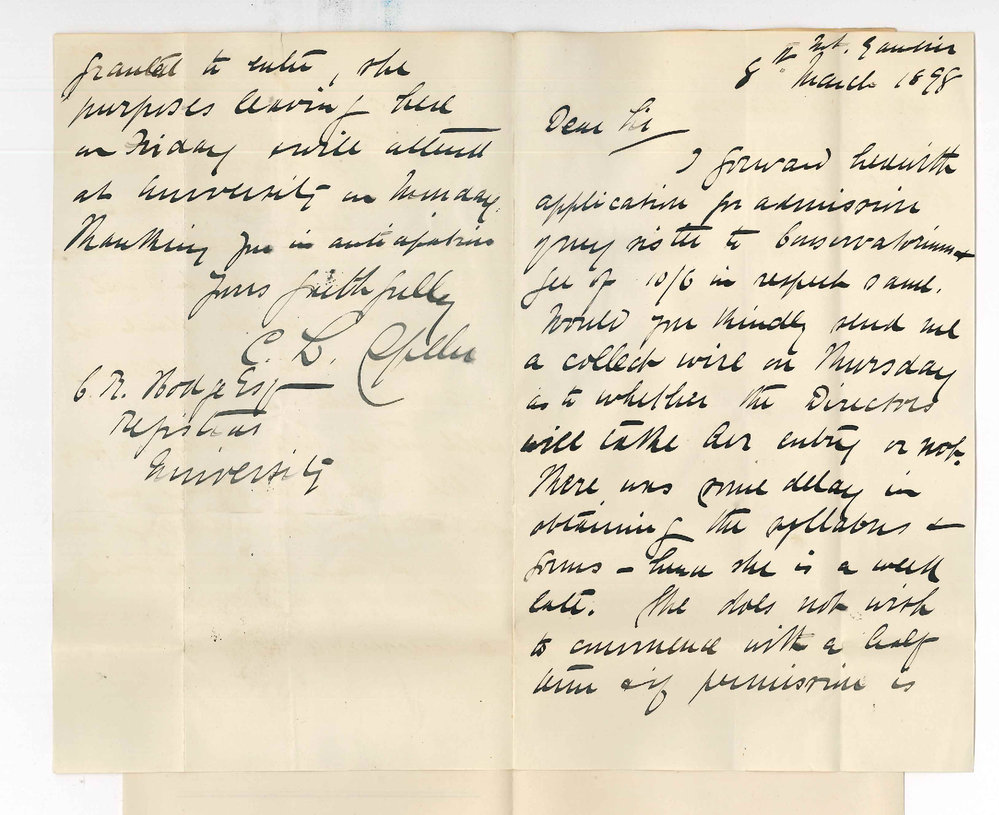 Mt. Gambier
8th March 1898
Dear Sir
I forward herewith
application for admission
of my sister to Conservatorium &
fee of 10/6 in respect same.
Would you kindly send me
a collect wire on Thursday
as to whether the Directors
will take her entry or not.
There was some delay in
obtaining the syllabus &
forms - hence she is a week
late. She does not wish
to commence with a half
term & if permission is
granted to enter, she
purposes leaving here
on Friday & will attend
at University on Monday.
Thanking you in anticipation
Yours faithfully
C. L.
C. R. Hodge Esq
Registrar
University